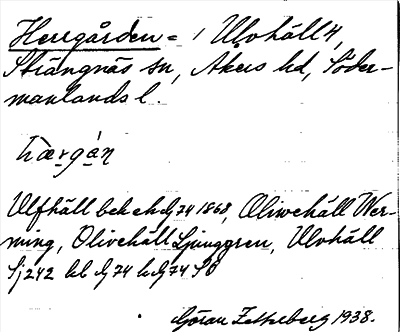 Herrgården = / Ulvhäll 4,
Strängnäs sn, Åkers hd, Söder-
manlands l.
hærgán
Ulfhäll bek 1868, Oliwehäll Wer-
ming, Olivehäll Ljunggren, Ulvhäll
Sj 242 bl
Göran Zetterberg 1938.